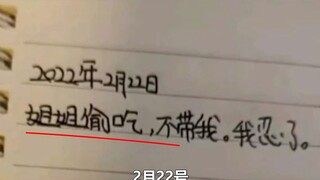 2022年2月22日
姐姐偷吃，不带我。我忍了。
2月22号